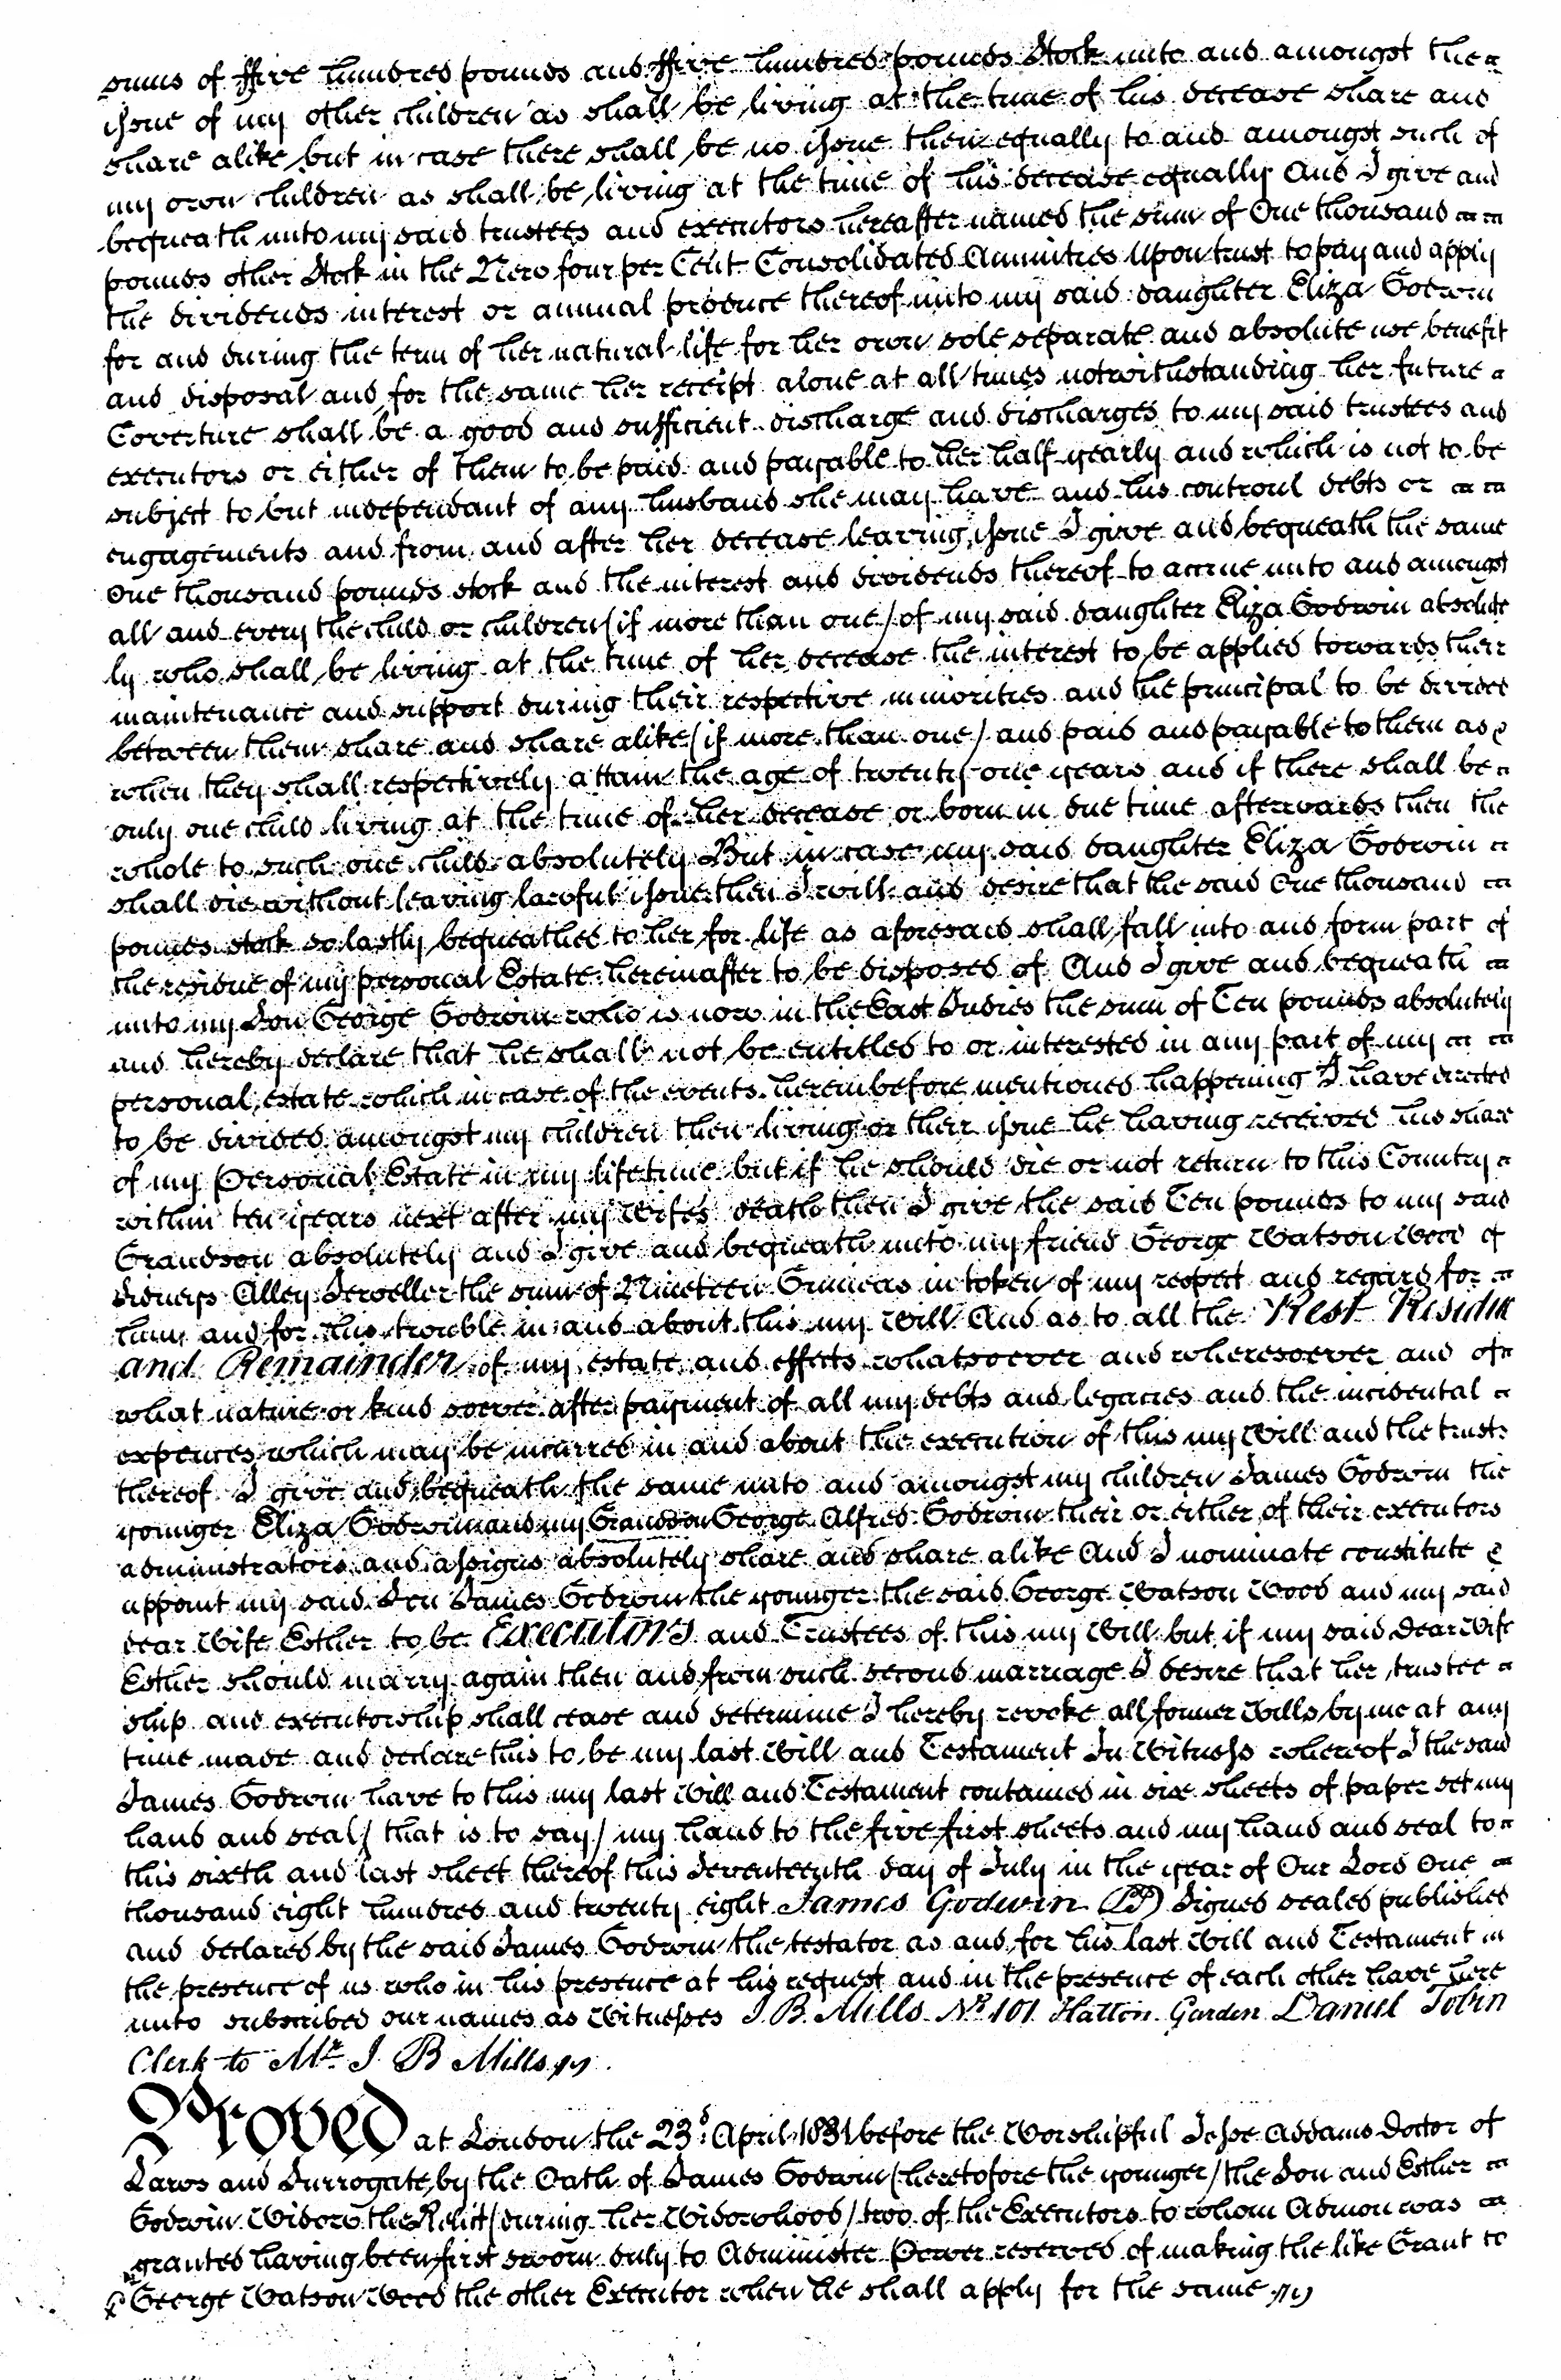 sums of ffive hundred pounds and ffive hundred pounds Stock unto and amongst the
issue of my other children as shall be living at the time of his decease share and
share alike but in case there shall be no issue then equally to and amongst such of
my own children as shall be living at the time of his decease equally And I give and
bequeath unto my said trustees and executors hereafter named the sum of One thousand
pounds other Stock in the New four per Cent Consolidated Annuities Upon trust to pay and apply
the dividends interest or annual produce thereof unto my said daughter Eliza Godwin
for and during the term of her natural life for her own sole separate and absolute use benefit
and disposal and for the same her receipt alone at all times notwithstanding her future
Coverture shall be a good and sufficient discharge and discharges to my said trustees and
executors or either of them to be paid and payable to her half yearly and which is not to be
subject to but independant of any husband she may have and his controul debts or
engagements and from and after her decease leaving issue I give and bequeath the same
One thousand pounds stock and the interest and dividends thereof to accrue unto and amongst
all and every the child or children (if more than one) of my said daughter Eliza Godwin absolute
ly who shall be living at the time of her decease the interest to be applied towards their
maintenance and support during their respective minorities and the principal to be divided
between them share and share alike (if more than one) and paid and payable to them as &
when they shall respectively attain the age of twenty one years and if there shall be
only one child living at the time of her decease or born in due time afterwards then the
whole to such one child absolutely But in case my said daughter Eliza Godwin
shall die without leaving lawful issue then I will and desire that the said One thousand
pounds stock so lastly bequeathed to her for life as aforesaid shall fall into and form part of
the residue of my personal Estate hereinafter to be disposed of And I give and bequeath
unto my Son George Godwin who is now in the East Indies the sum of Ten pounds absolutely
and hereby declare that he shall not be entitled to or interested in any part of my
personal estate which in case of the events hereinbefore mentioned happening I have directed
to be divided amongst my children then living or their issue he having received his share
of my Personal Estate in my lifetime but if he should die or not return to this Country
within ten years next after my Wifes death then I give the said Ten pounds to my said
Grandson absolutely and I give and bequeath unto my friend George Watson Wood of
Sidneys Alley Jeweller the sum of Nineteen Guineas in token of my respect and regard for
him and for his trouble in and about this my Will And as to all the Rest Residue
and Remainder of my estate and effects whatsoever and wheresoever and of
what nature or kind soever after payment of all my debts and legacies and the incidental
expences which may be incurred in and about the execution of this my Will and the trusts
thereof I give and bequeath the same unto and amongst my children James Godwin the
younger Eliza Godwin and my Grandson George Alfred Godwin their or either of their executors
administrators and assigns absolutely share and share alike And I nominate constitute &
appoint my said Son James Godwin the younger the said George Watson Wood and my said
dear Wife Esther to be Executors and Trustees of this my Will but if my said Dear Wife
Esther should marry again then and from such second marriage I desire that her trustee
ship and executorship shall cease and determine I hereby revoke all former Wills by me at any
time made and declare this to be my last Will and Testament In Witness whereof I the said
James Godwin have to this my last Will and Testament contained in six sheets of paper set my
hand and seal (that is to say) my hand to the five first sheets and my hand and seal to
this sixth and last sheet thereof this Seventeenth day of July in the year of Our Lord One
thousand eight hundred and twenty eight James Godwin (LS) Signed sealed published
and declared by the said James Godwin the testator as and for his last Will and Testament in
the presence of us who in his presence at his request and in the presence of each other have here
unto subscribed our names as Witnesses J. B. Mills No 101 Hatton Garden Daniel Tobin
Clerk to Mr. J B Mills
Proved at London the 23d April 1831 before the Worshipful Jesse Addams Doctor of
Laws and Surrogate by the Oath of James Godwin (heretofore the younger) the Son and Esther
Godwin Widow the Relict (during her Widowhood) two of the Executors to whom Admon was
granted having been first sworn duly to Administer Power reserved of making the like Grant to
George Watson Wood the other Executor when he shall apply for the same